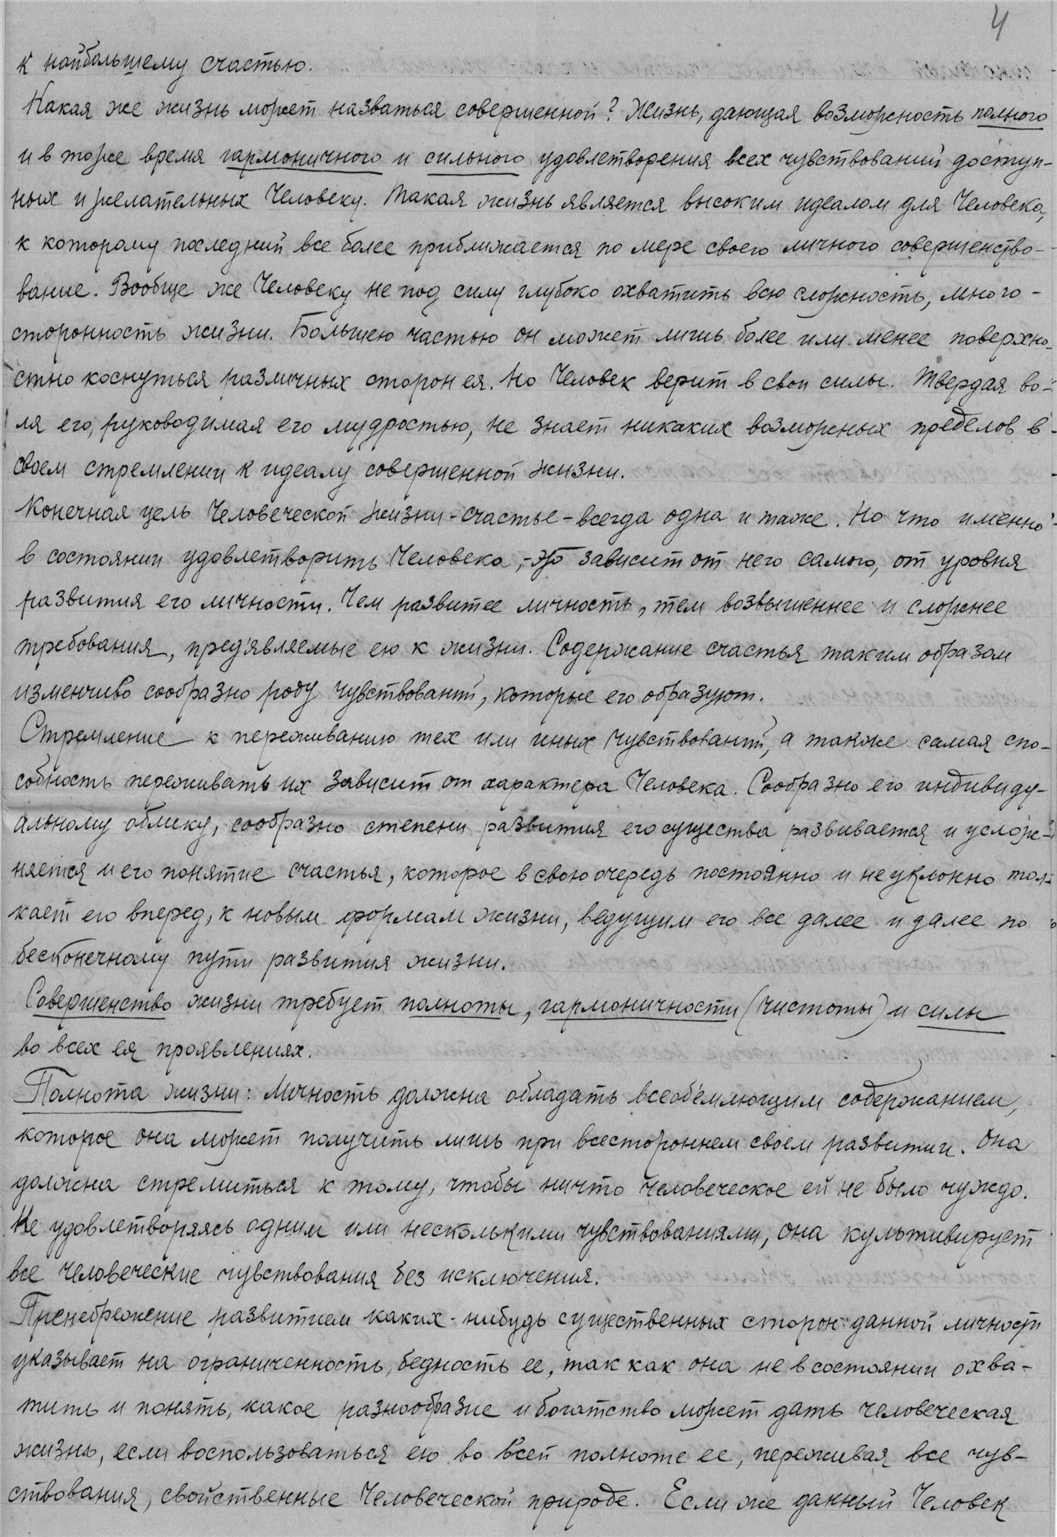 4
к наибольшему счастью.
Какая же жизнь может назваться совершенной? Жизнь, дающая возможность полного
и в тоже время гармоничного и сильного удовлетворения всех чувствований доступ-
ных и желательных Человеку. Такая жизнь является высоким идеалом для Человека,
к которому последний все более приближается по мере своего личного совершенство-
вание. Вообще же Человеку не под силу глубоко охватить всю сложность, много-
сторонность жизни. Большею частью он может лишь более или менее поверхно-
стно коснуться различных сторон ея. Но Человек верит в свои силы. Твердая во-
ля его, руководимая его мудростью, не знает никаких возможных пределов в
своем стремлении к идеалу совершенной жизни.
Конечная цель Человеческой жизни - счастье - всегда одна и таже. Но что именно
в состоянии удовлетворить Человека, - это зависит от него самого, от уровня
развития его личности. Чем развитее личность, тем возвышеннее и сложнее
требования, пред'являемые ею к жизни. Содержание счастья таким образом
изменчиво сообразно роду чувствований, которые его образуют.
Стремление к переживанию тех или иных чувствований, а также самая спо-
собность переживать их зависит от характера Человека. Сообразно его индивиду-
альному облику, сообразно степени развития его существа развивается и услож-
няется и его понятие счастья, которое в свою очередь постоянно и неуклонно тол-
кает его вперед, к новым формам жизни, ведущим его все далее и далее по
бесконечному пути развития жизни.
Совершенство жизни требует полноты, гармоничности (чистоты) и силы
во всех ея проявлениях.
Полнота жизни: Личность должна обладать всеоб'емлющим содержанием,
которое она может получить лишь при всестороннем своем развитии. Она
должна стремиться к тому, чтобы ничто человеческое ей не было чуждо.
Не удовлетворяясь одним или несколькими чувствованиями, она культивирует
все человеческие чувствования без исключения.
Пренебрежение развитием каких-нибудь существенных сторон данной личности
указывает на ограниченность, бедность ее, так как она не в состоянии охва-
тить и понять, какое разнообразие и богатство может дать человеческая
жизнь, если воспользоваться ею во всей полноте ее, переживая все чув-
ствования, свойственные Человеческой природе. Если же данный Человек